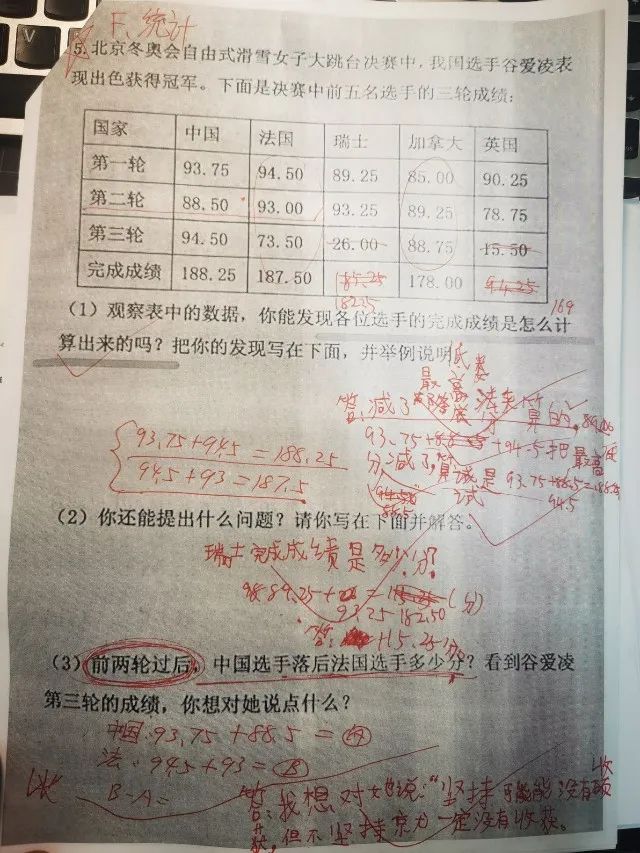 F、统计
5.北京冬奥会自由式滑雪女子大跳台决赛中，我国选手谷爱凌表
现出色获得冠军。下面是决赛中前五名选手的三轮成绩：
国家 中国 法国 瑞士 加拿大 英国
第一轮 93.75 94.50 89.25 85.00 90.25
第二轮 88.50 93.00 93.25 89.25 78.75
第三轮 94.50 73.50 26.00 88.75 15.50
完成成绩 188.25 187.50 178.00
182.5
169
（1）观察表中的数据，你能发现各位选手的完成成绩是怎么计
算出来的吗？把你的发现写在下面，并举例说明
最低
答：减了
93.75+94.5=188.25
94.5+93=187.5
分减了，算式是 93.75
94.5
（2）你还能提出什么问题？请你写在下面并解答。
瑞士完成成绩是多少分？
89.25+
93.25 182.50 （分）
答： 115.25分。
（3）前两轮过后，中国选手落后法国选手多少分？看到谷爱凌
第三轮的成绩，你想对她说点什么？
中国：93.75+88.5=A
法：94.5+93=B
B-A=
答：我想对她说："坚持可能没有收
获，但不坚持 一定没有收获。